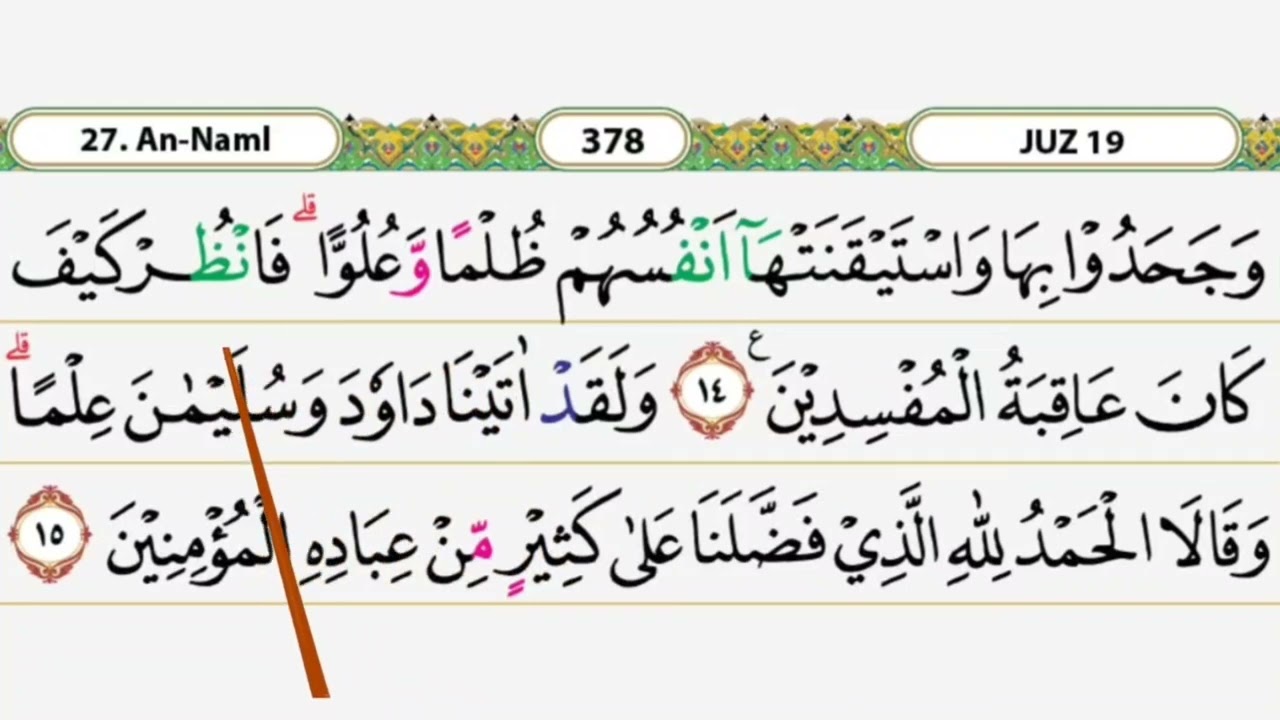 27. An-Naml 378 JUZ 19
وَجَحَدُوْا بِهَا وَاسْتَيْقَنَتْهَآ اَنْفُسُهُمْ ظُلْمًا وَّعُلُوًّا ۗ فَانْظُرْ كَيْفَ
كَانَ عَاقِبَةُ الْمُفْسِدِيْنَ ࣖ ١٤ وَلَقَدْ اٰتَيْنَا دَاوٗدَ وَسُلَيْمٰنَ عِلْمًا ۗ
وَقَالَا الْحَمْدُ لِلّٰهِ الَّذِيْ فَضَّلَنَا عَلٰى كَثِيْرٍ مِّنْ عِبَادِهِ الْمُؤْمِنِيْنَ ١٥